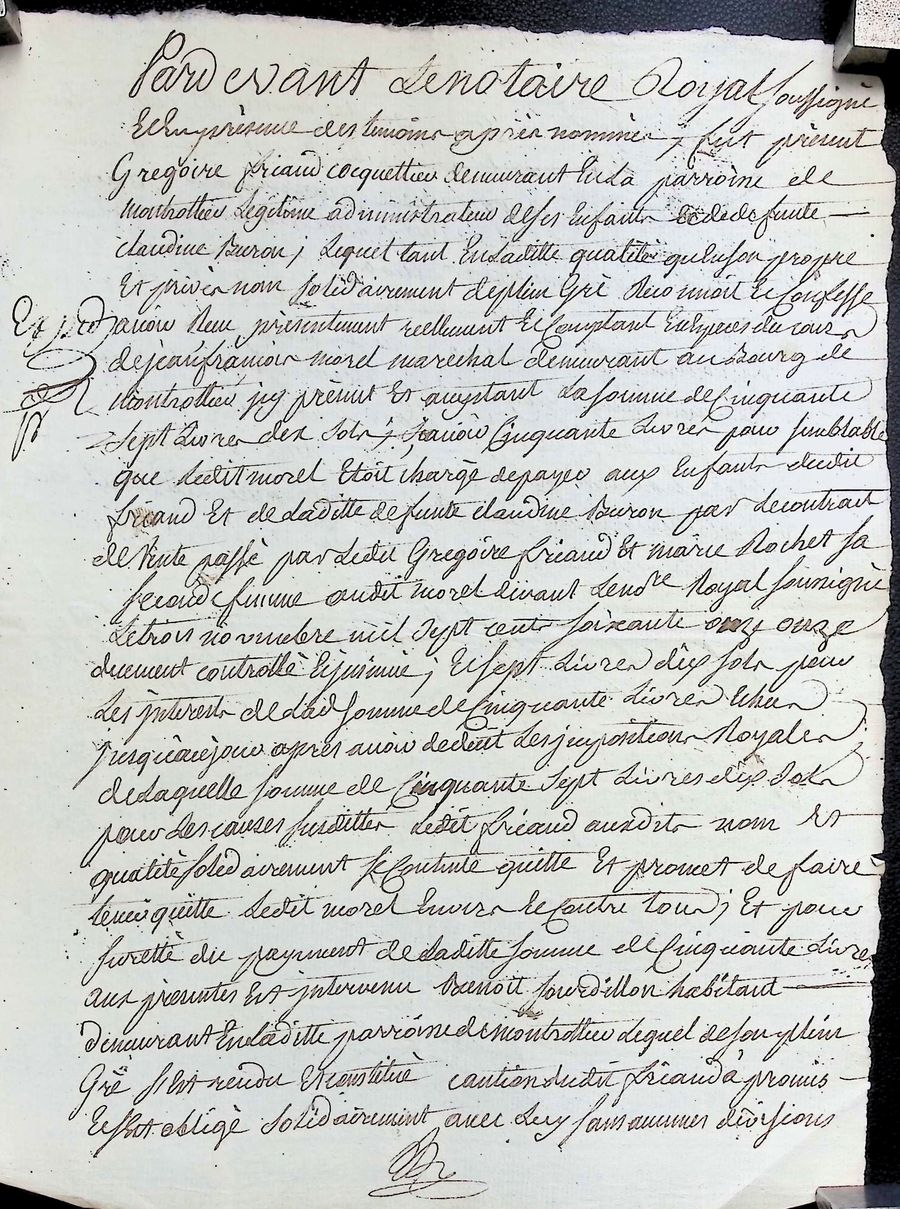 Pardevant Lenotaire Royal soussigné
Et En présence des temoins après nommés, fut présent
Gregoire friaud cocquettier demeurant En La parroisse de
Montrottier Legitime administrateur de ses Enfants Et de defunte
claudine Buron, Lequel tant En Laditte qualité qu'En son propre
Et privés nom solidairement de plein Gré Reconnoit Et Confesse
avoir Reçu présentement reellement Et Comptant En Espèces du cours
de jean françois morel marechal demeurant au Bourg de
Montrottier jcy présent Et acceptant La somme de Cinquante
sept Livres dex sols, sçavoir Cinquante Livres pour semblable
que Ledit morel Etoit chargé de payer aux Enfants dudit
friaud Et de Laditte defunte claudine Buron par Le contrait
de Vente passé par Ledit Gregoire friaud Et marie Rochet sa
seconde femme audit morel devant Le no.re Royal soussigné
Le trois novembre mil sept cents soixante onze onze
duement controllé Et insinué, Et sept Livres dix sols pour
Les jnterests de Lad. somme de Cinquante Livres Echus
jusqu'a ce jour après avoir deduit Les jmpositions Royales
de Laquelle somme de Cinquante sept Livres dix sols
pour Les causes susdittes Ledit friaud auxdits nom Et
qualité solidairement se Contente quitte Et promet de faire
tenir quitte Ledit morel Envers Et Contre tous, Et pour
suretté du payment de Laditte somme de Cinquante Livres
aux présentes Est jntervenu Benoit jourdillon habitant
demeurant En Laditte parroisse de montrottier Lequel de son plein
Gré s'Est rendu Et constitué caution dudit friaud à promis
Et s'Est obligé solidairement avec Luy sans aucunes divisions